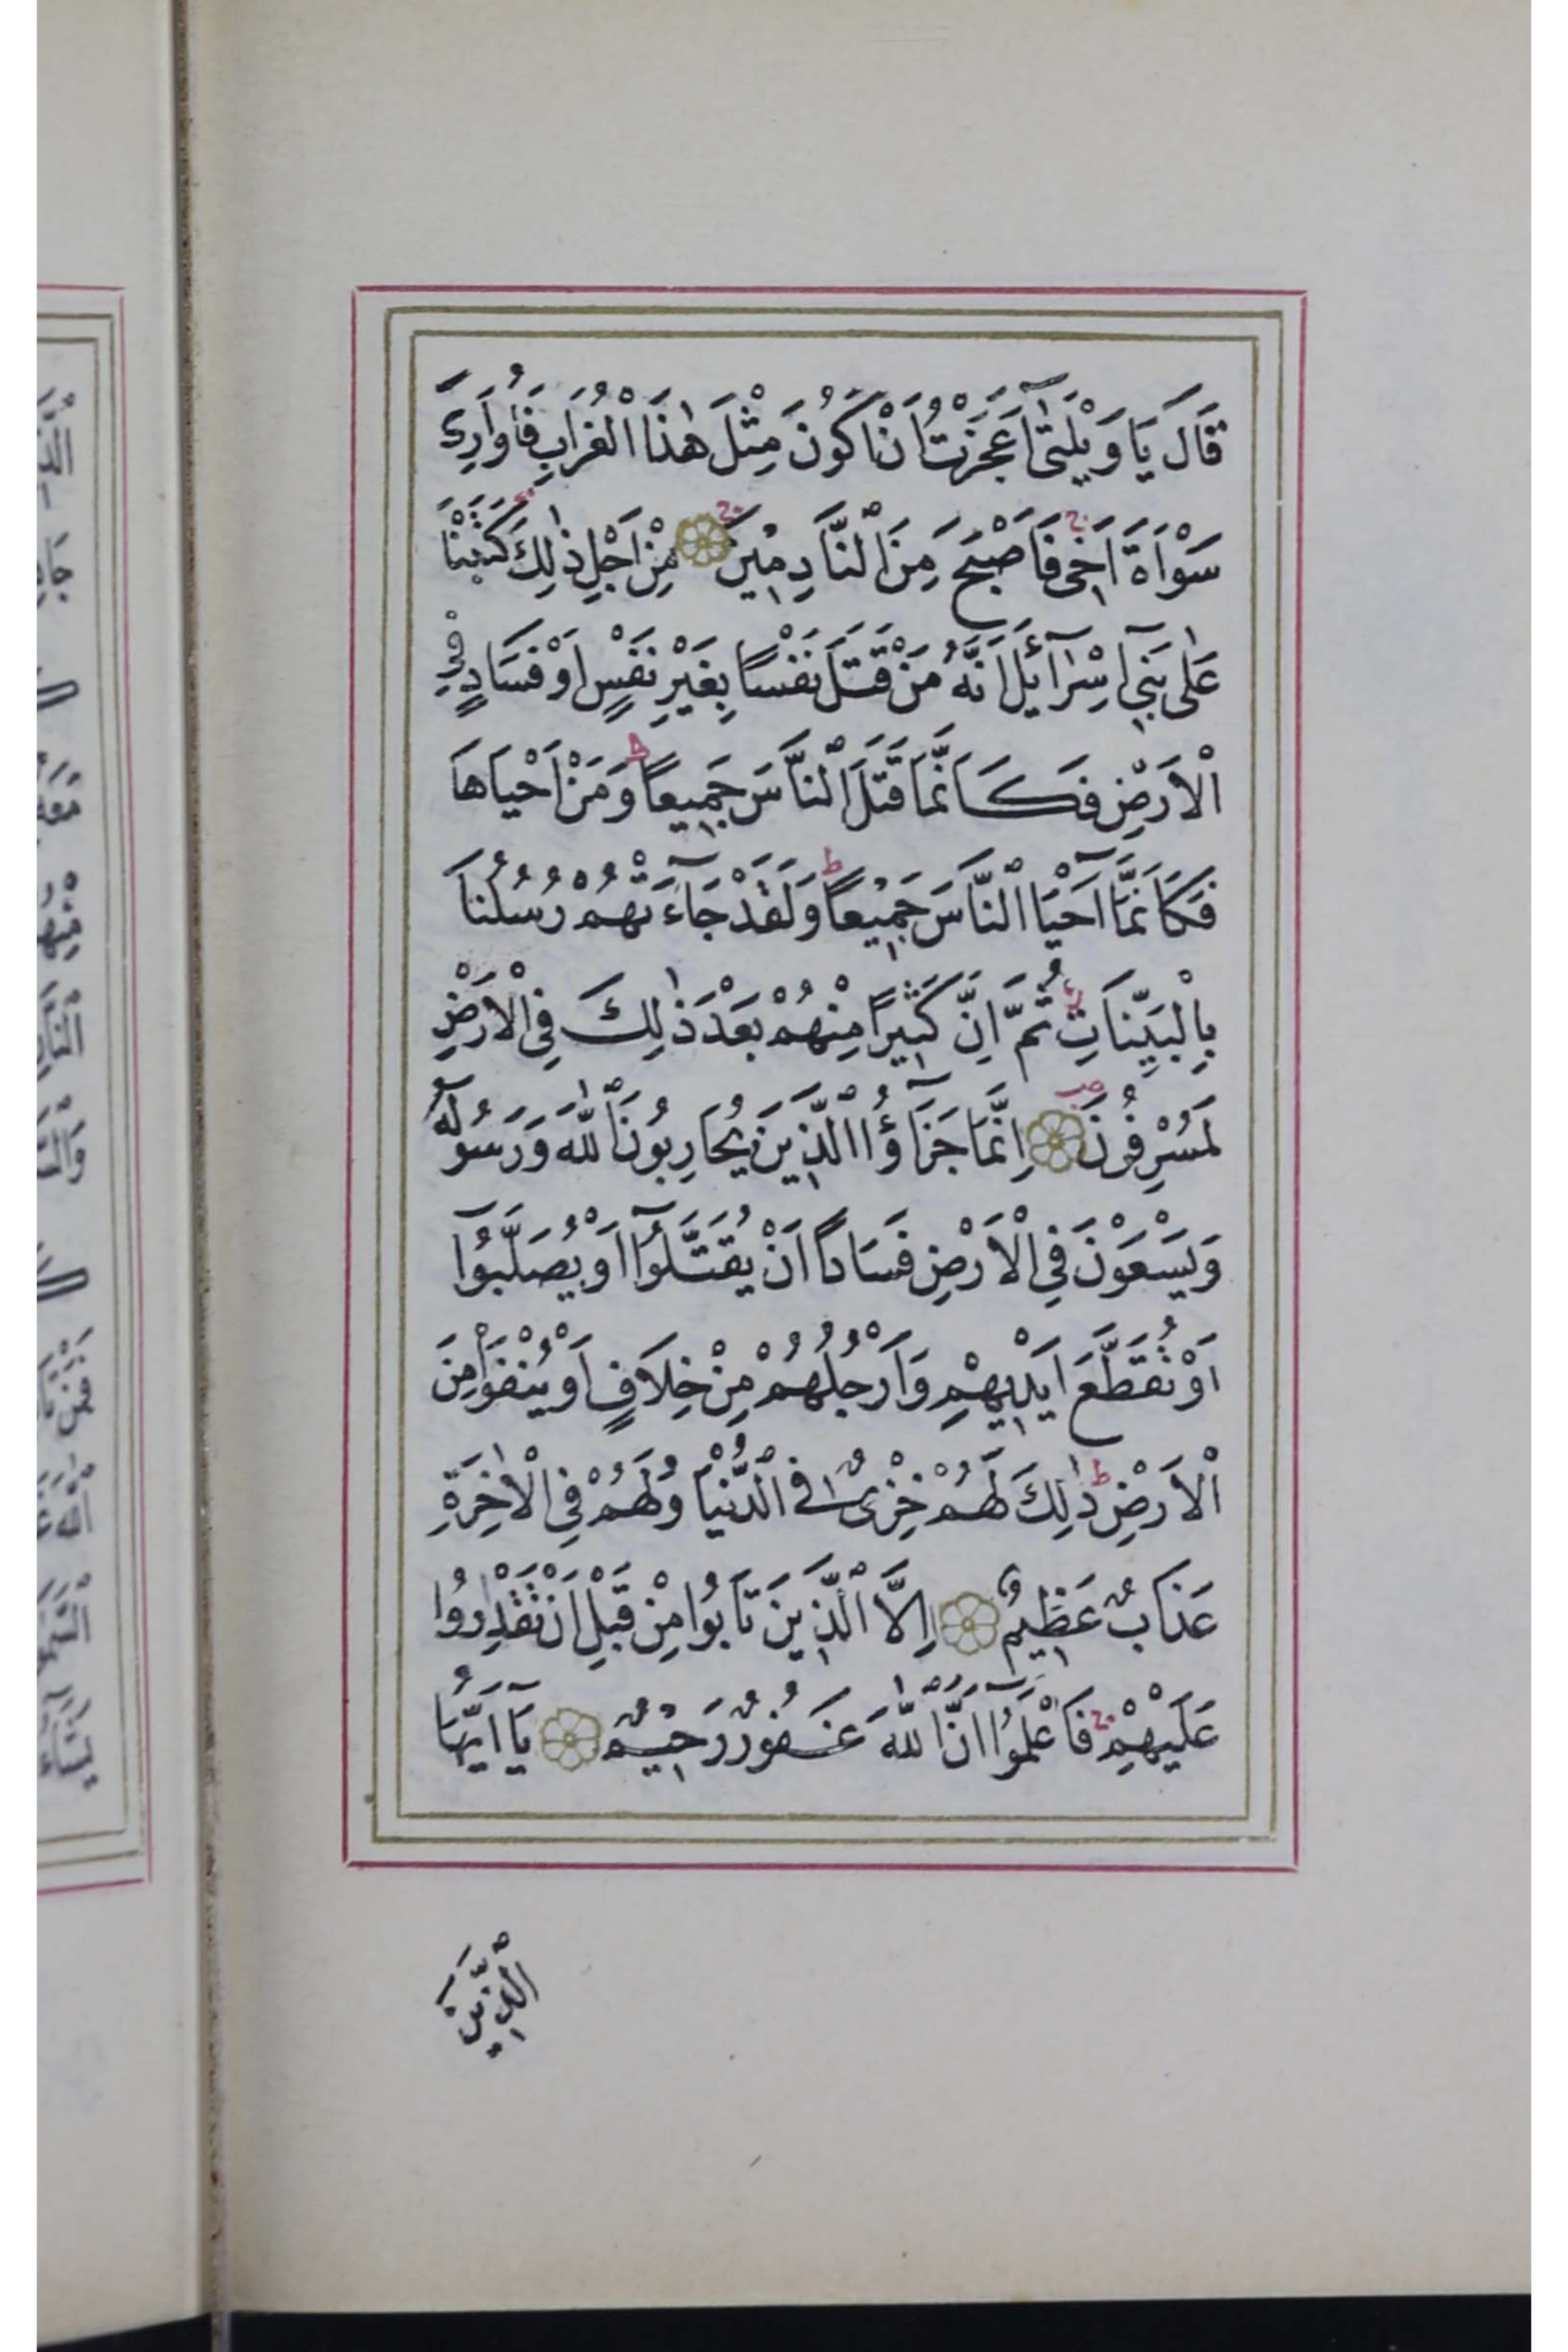 قَالَ يَا وَيْلَتٰٓى اَعَجَزْتُ اَنْ اَكُونَ مِثْلَ هٰذَا الْغُرَابِ فَاُوَارِىَ
سَوْاَةَ اَخٖى فَاَصْبَحَ مِنَ النَّادِمٖينَ ۞ مِنْ اَجْلِ ذٰلِكَ كَتَبْنَا
عَلٰى بَنٖٓى اِسْرَٓائٖلَ اَنَّهُ مَنْ قَتَلَ نَفْسًا بِغَيْرِ نَفْسٍ اَوْ فَسَادٍ فِى
الْاَرْضِ فَكَاَنَّمَا قَتَلَ النَّاسَ جَمٖيعًا ط وَمَنْ اَحْيَاهَا
فَكَاَنَّمَٓا اَحْيَا النَّاسَ جَمٖيعًا ط وَلَقَدْ جَٓاءَتْهُمْ رُسُلُنَا
بِالْبَيِّنَاتِ ثُمَّ اِنَّ كَثٖيرًا مِنْهُمْ بَعْدَ ذٰلِكَ فِى الْاَرْضِ
لَمُسْرِفُونَ ۞ اِنَّمَا جَزَٓاؤُا الَّذٖينَ يُحَارِبُونَ اللّٰهَ وَرَسُولَهُ
وَيَسْعَوْنَ فِى الْاَرْضِ فَسَادًا اَنْ يُقَتَّلُٓوا اَوْ يُصَلَّبُٓوا
اَوْ تُقَطَّعَ اَيْدٖيهِمْ وَاَرْجُلُهُمْ مِنْ خِلَافٍ اَوْ يُنْفَوْا مِنَ
الْاَرْضِ ط ذٰلِكَ لَهُمْ خِزْىٌ فِى الدُّنْيَا وَلَهُمْ فِى الْاٰخِرَةِ
عَذَابٌ عَظٖيمٌ ۞ اِلَّا الَّذٖينَ تَابُوا مِنْ قَبْلِ اَنْ تَقْدِرُوا
عَلَيْهِمْ ج فَاعْلَمُٓوا اَنَّ اللّٰهَ غَفُورٌ رَحٖيمٌ ۞ يَٓا اَيُّهَا
الَّذٖينَ